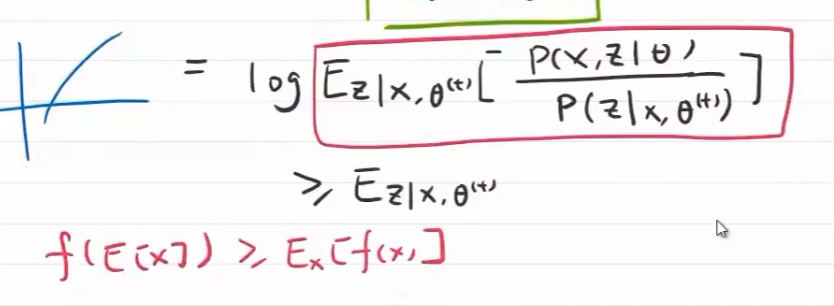 = log E_{z|x,θ^{(t)}} [ P(x,z|θ) / P(z|x,θ^{(t)}) ]
≥ E_{z|x,θ^{(t)}}
f(E[x]) ≥ E_x[f(x)]